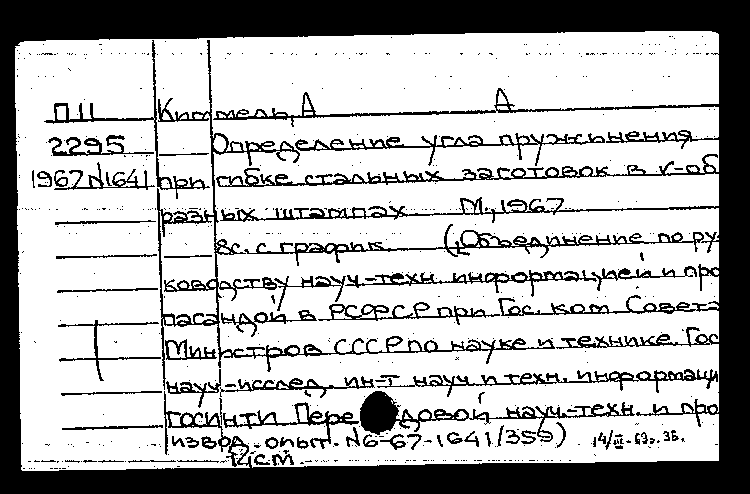 П11 Киммель, А А
2295 Определение угла пружинения
1967 N1641 при гибке стальных заготовок в V-об
разных штампах М., 1967
8с. с график (Объединение по ру
ководству науч.-техн. информацией и про
пагандой в РСФСР при Гос. ком. Совета
Министров СССР по науке и технике. Гос
науч-исслед. ин-т науч и техн. информаци
ГОСИНТИ Передовой науч.-техн. и про
извод. опыт. N6-67-1641/359)